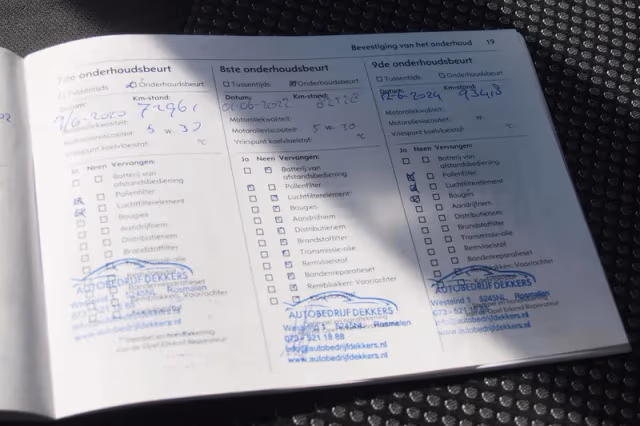 Bevestiging van het onderhoud 19
7de onderhoudsbeurt
Tussentijds Onderhoudsbeurt
Datum: Km-stand:
9/6-2020 72961
Motoroliekwaliteit:
Motorolieviscositeit: 5 w. 30
Vriespunt koelvloeistof: °C
Ja Neen Vervangen:
Batterij van
afstandsbediening
Pollenfilter
Luchtfilterelement
Bougies
Aandrijfriem
Distributieriem
Brandstoffilter
AUTOBEDRIJF DEKKERS
Westeind 1 5245NL Rosmalen
073 - 521
www.autobedrijfdekkers.nl
8ste onderhoudsbeurt
Tussentijds Onderhoudsbeurt
Datum: Km-stand:
2022
Motoroliekwaliteit:
Motorolieviscositeit: 5 w. 30
Vriespunt koelvloeistof: °C
Ja Neen Vervangen:
Batterij van
afstandsbediening
Pollenfilter
Luchtfilterelement
Bougies
Aandrijfriem
Distributieriem
Brandstoffilter
Transmissie-olie
Remvloeistof
Bandenreparatieset
Remblokken: Voor/achter
AUTOBEDRIJF DEKKERS
Westeind 1 5245NL Rosmalen
073 - 521 18 88
info@autobedrijfdekkers.nl
www.autobedrijfdekkers.nl
9de onderhoudsbeurt
Tussentijds Onderhoudsbeurt
Datum: Km-stand:
12-6-2024 93418
Motoroliekwaliteit:
Motorolieviscositeit: w.
Vriespunt koelvloeistof: °C
Ja Neen Vervangen:
Batterij van
afstandsbediening
Pollenfilter
Luchtfilterelement
Bougies
Aandrijfriem
Distributieriem
Brandstoffilter
Transmissie-olie
Remvloeistof
Bandenreparatieset
Remblokken: Voor/achter
AUTOBEDRIJF DEKKERS
Westeind 1 5245NL Rosmalen
073 - 521
www.autobedrijfdekkers.nl